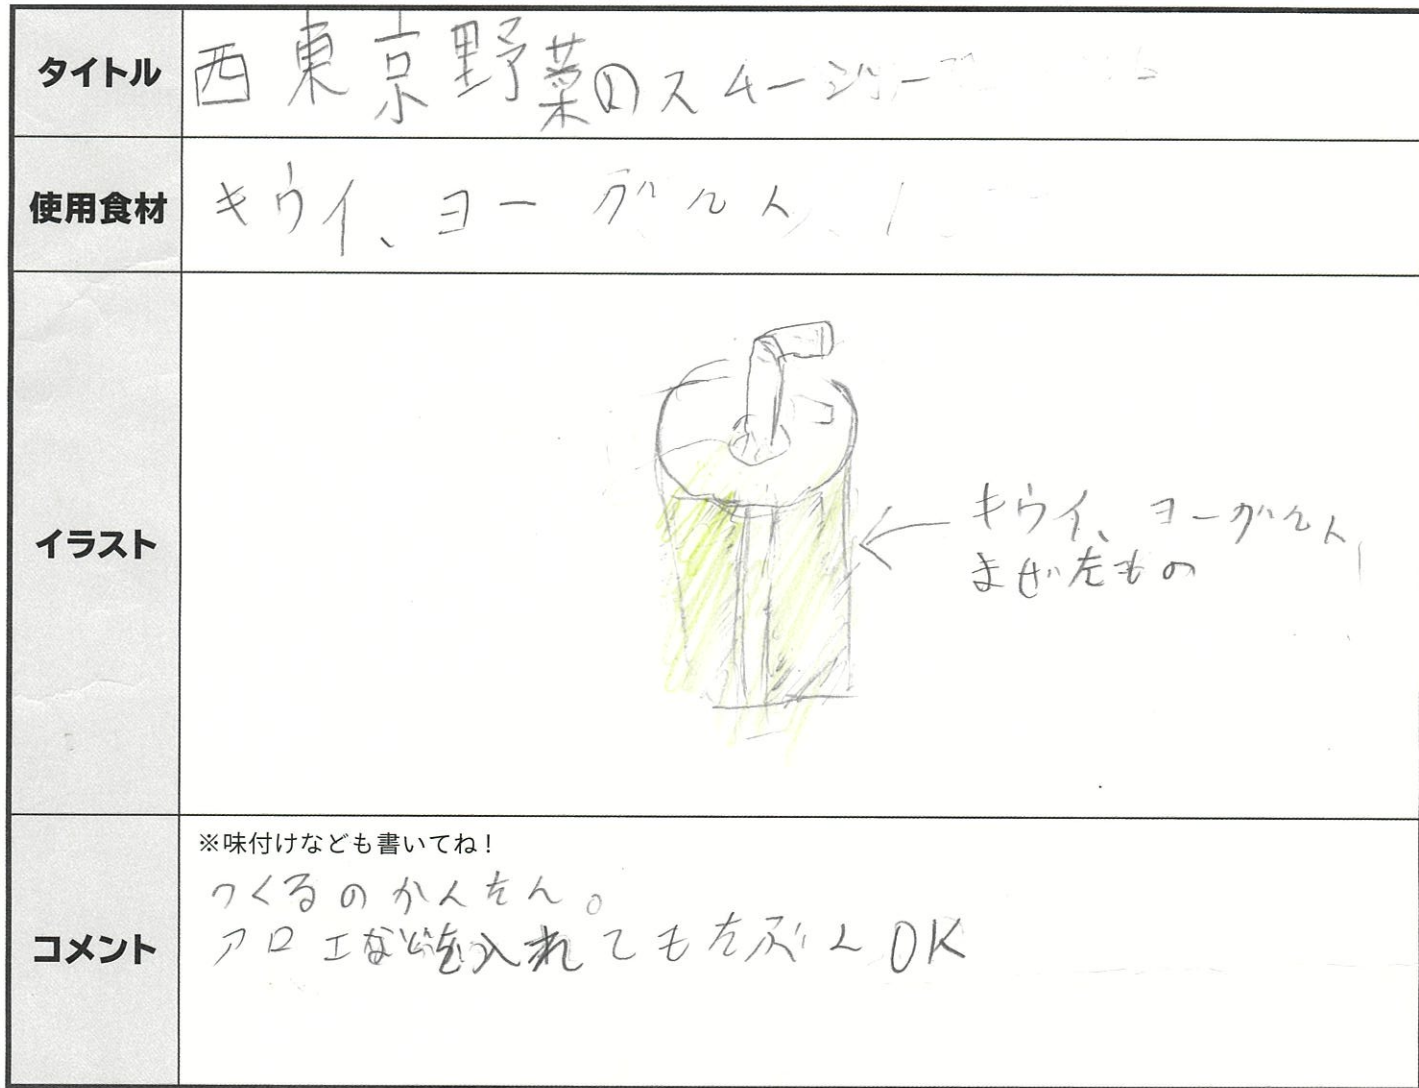 タイトル
西東京野菜のスムージー
使用食材
キウイ、ヨーグルト
イラスト
キウイ、ヨーグルト
まぜたもの
コメント
※味付けなども書いてね!
つくるのかんたん。
アロエなどを入れてもたぶんOK